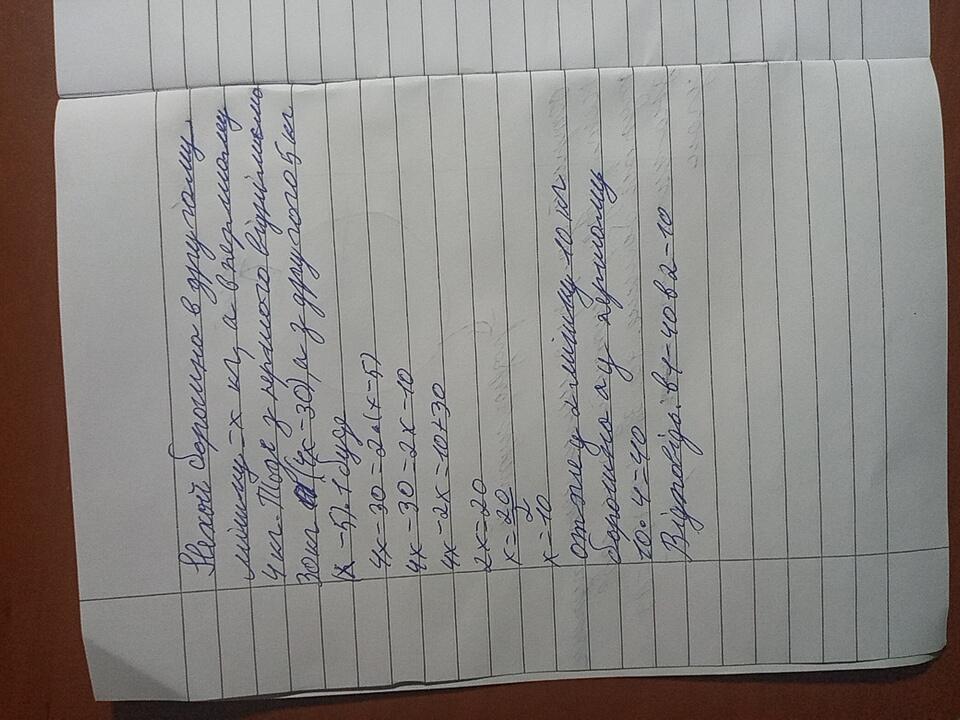 Нехай борошна в другому
мішку -х кг, а в першому
4 кг. Тоді з першого відсипемо
30 кг (4х -30), а з другого 5 кг
(х -5). І буде
4х -30 = 2·(х -5)
4х -30 = 2х -10
4х -2х = 10+30
2х = 20
х = 20/2
х = 10
отже у 2 мішку 10 кг
борошно а у першому
10 · 4 = 40
Відповідь. в 1 - 40 в 2 - 10